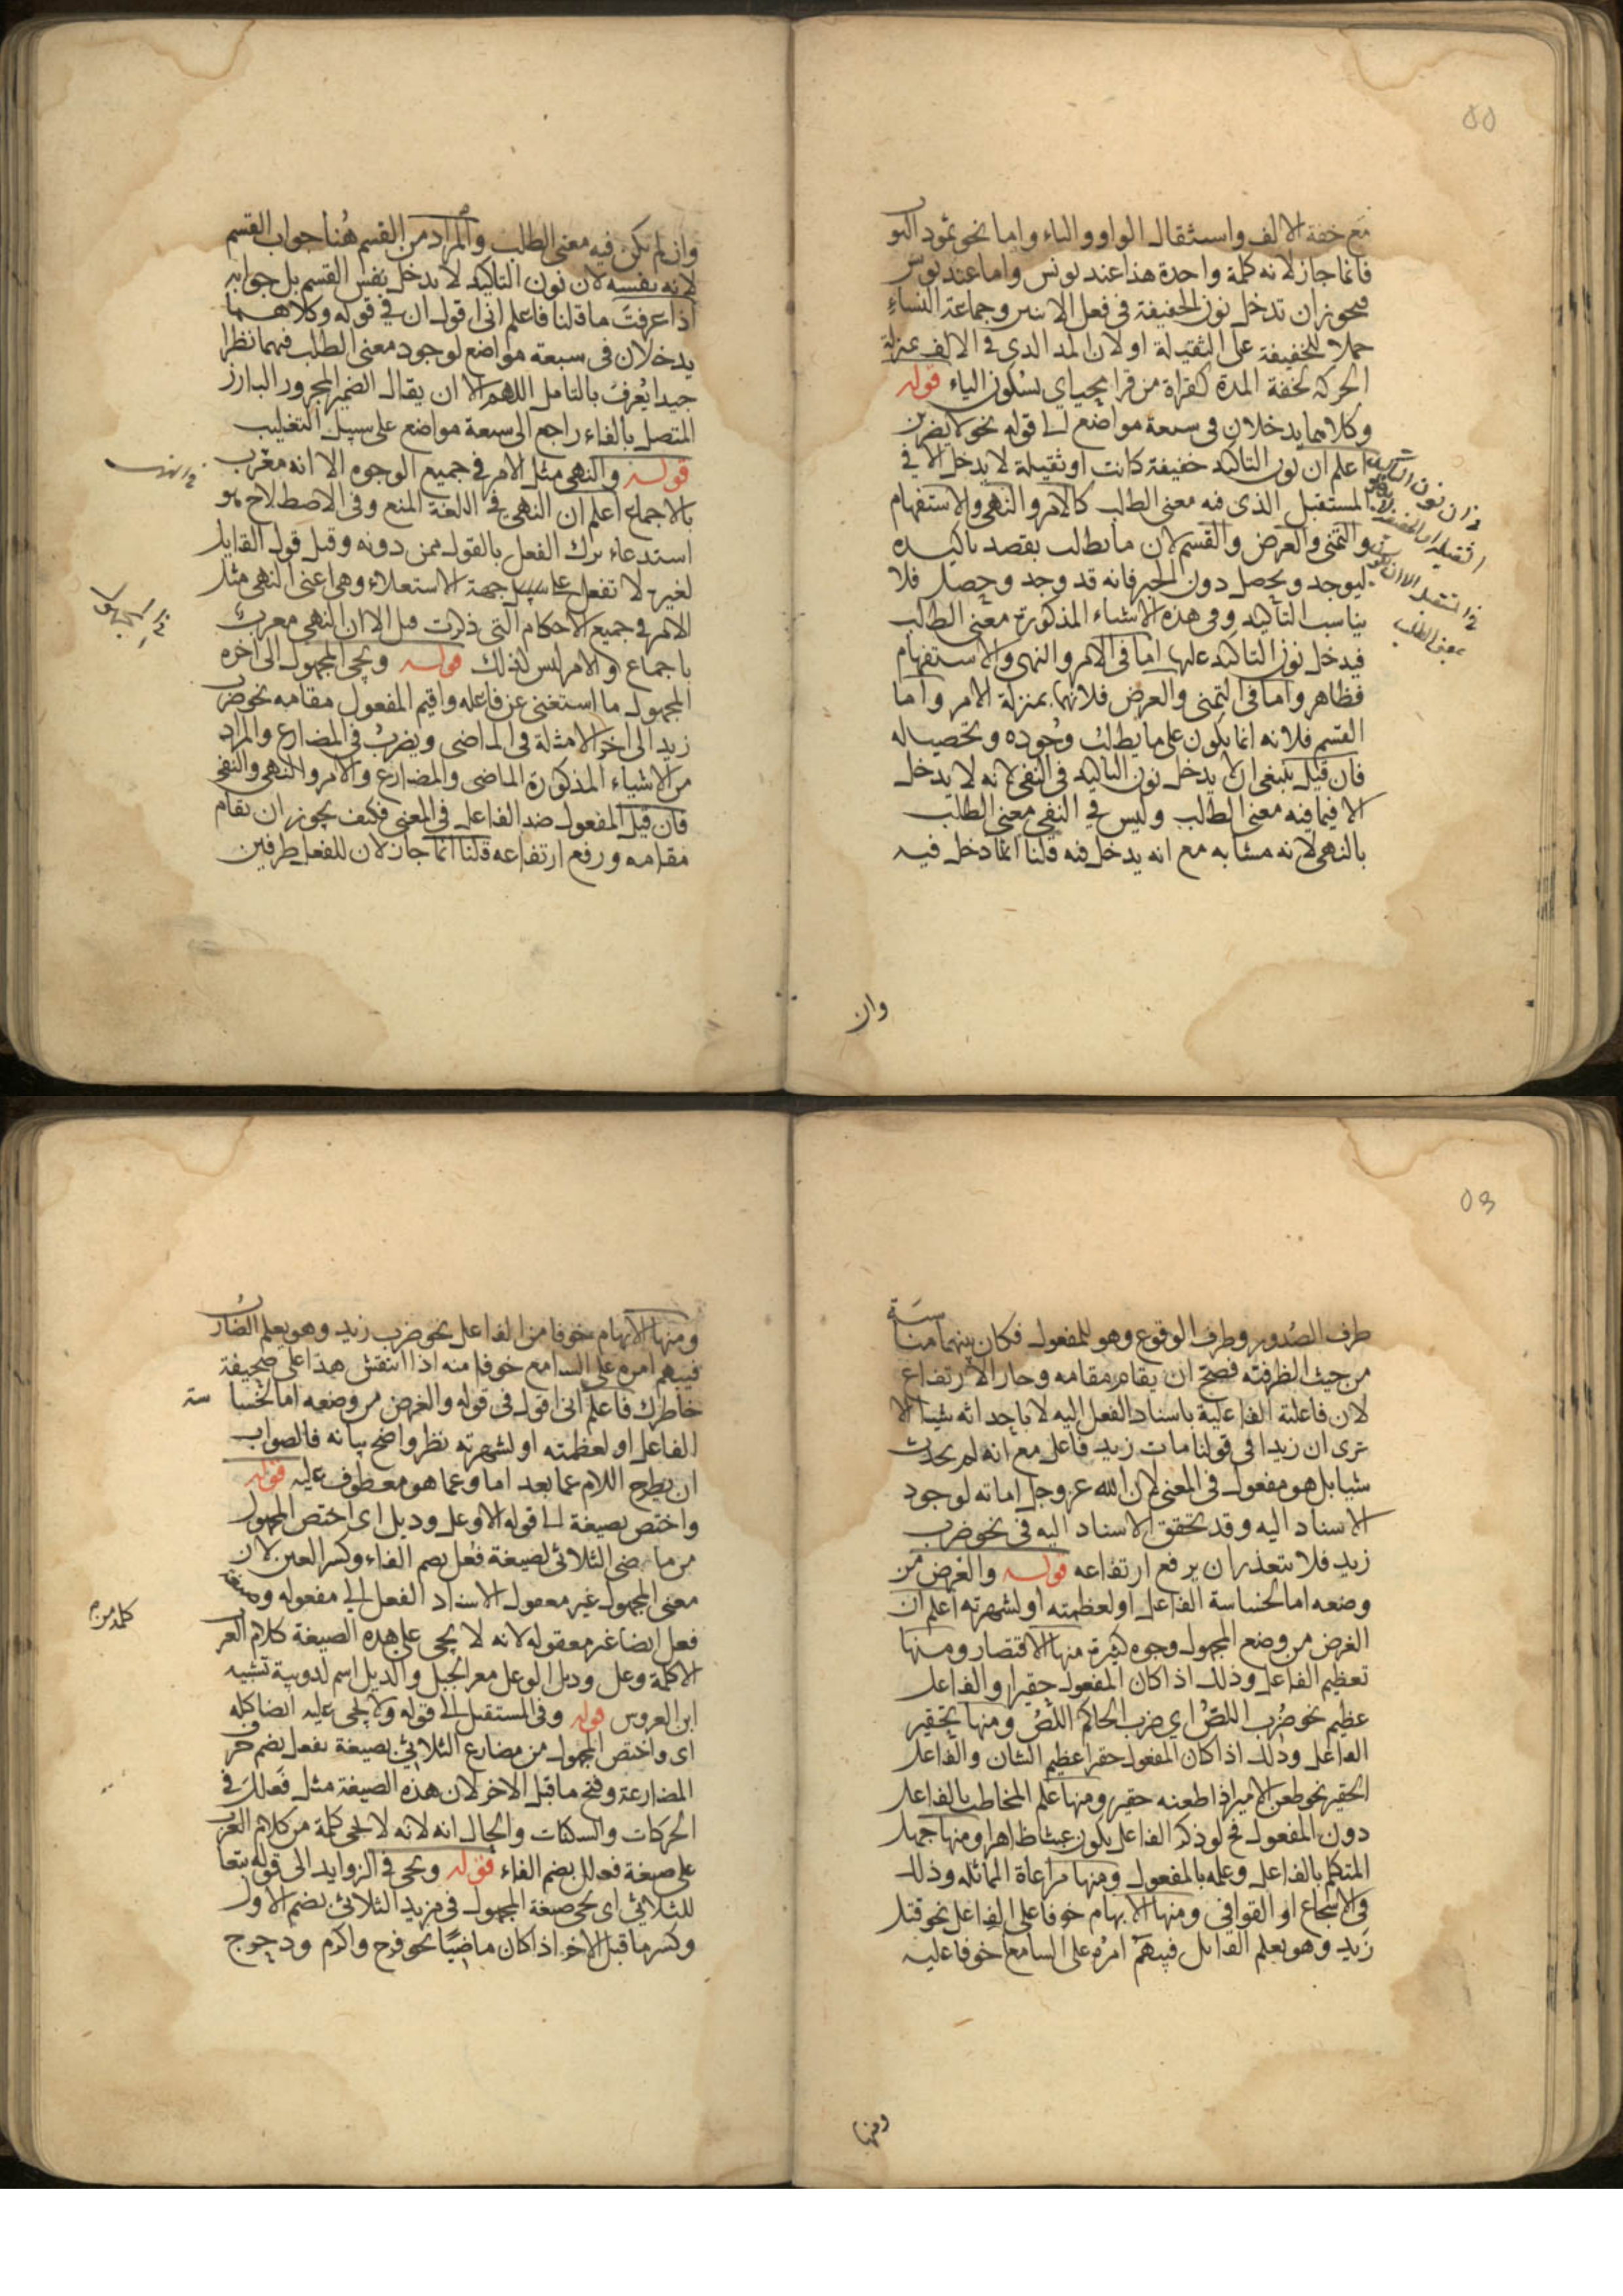 مع خفة الالف واستثقال الواو والياء واما نحو تمود الثو
فانما جاز لانه كلمة واحدة هذا عند يونس واما عند يونس
فيجوز ان تدخل نون الخفيفة في فعل الاثنين وجماعة النساء
حملا للخفيفة على الثقيلة او لان المد الذي في الالف بمنزلة
الحركة لخفة المدة كقراة من قرا محياي بسكون الياء قوله
وكلاهما يدخلان في سبعة مواضع الى قوله نحو لا يضربن
اعلم ان نون التاكيد خفيفة كانت او ثقيلة لا يدخل الا في
المستقبل الذي فيه معنى الطلب كالامر والنهي والاستفهام
والتمنى والعرض والقسم لان ما يطلب يقصد تاكيده
ليوجد ويحصل دون الخبر فانه قد وجد وحصل فلا
يناسب التاكيد وفي هذه الاشياء المذكورة معنى الطلب
فيدخل نون التاكيد عليها اما في الامر والنهى والاستفهام
فظاهر واما في التمنى والعرض فلانهما بمنزلة الامر واما
القسم فلانه انما يكون على ما يطلب وجوده وتحصيله
فان قيل ينبغى ان لا يدخل نون التاكيد في النفى لانه لا يدخل
الا فيما فيه معنى الطلب وليس في النفى معنى الطلب
بالنهى لانه مشابه مع انه يدخل فيه قلنا انما دخل فيه
وان
وان لم يكن فيه معنى الطلب والمراد من القسم هنا جواب القسم
لانه نفسه لان نون التاكيد لا يدخل نفس القسم بل جوابه
اذا عرفت ما قلنا فاعلم انى اقول ان في قوله وكلاهما
يدخلان في سبعة مواضع لوجود معنى الطلب فيهما نظرا
جيدا يعرف بالتامل اللهم الا ان يقال الضمير المجرور البارز
المتصل بالفاء راجع الى سبعة مواضع على سبيل التغليب
قوله والنهى مثل الامر في جميع الوجوه الا انه معرب
بالاجماع اعلم ان النهى في اللغة المنع وفي الاصطلاح هو
استدعاء ترك الفعل بالقول ممن دونه وقيل قول القايل
لغيره لا تفعل على سبيل جهة الاستعلاء وهي اعنى النهى مثل
الامر في جميع الاحكام التى ذكرت قبل الا ان النهى معرب
باجماع والامر ليس كذلك قوله ويجى المجهول الى اخره
المجهول ما استغنى عن فاعله واقيم المفعول مقامه نحو ضرب
زيد الى اخر الامثلة في الماضى ويضرب في المضارع والمراد
من الاشياء المذكورة الماضى والمضارع والامر والنهى والنفى
فان قيل المفعول ضد الفاعل في المعنى فكيف يجوز ان يقام
مقامه ورفع ارتفاعه قلنا انما جاز لان للفعل طرفين
طرف الصدور وطرف الوقوع وهو للمفعول فكان بينهما مناسبة
من حيث الظرفية فصح ان يقام مقامه وجاز الارتفاع
لان فاعلية الفاعلية باسناد الفعل اليه لا باحداثه شيئا الا
ترى ان زيدا في قولنا مات زيد فاعل مع انه لم يحدث
شيا بل هو مفعول في المعنى لان الله عز وجل اماته لوجود
الاسناد اليه وقد تحقق الاسناد اليه في نحو ضرب
زيد فلا يتعذر ان يرفع ارتفاعه قوله والغرض من
وضعه اما لخساسة الفاعل او لعظمته او لشهرته اعلم ان
الغرض من وضع المجهول وجوه كثيرة منها الاقتصار ومنها
تعظيم الفاعل وذلك اذا كان المفعول حقيرا والفاعل
عظيم نحو ضرب اللص اي ضرب الحاكم اللص ومنها تحقير
الفاعل وذلك اذا كان المفعول حقرا عظيم الشان والفاعل
الحقير نحو طعن الامير اذا طعنه حقير ومنها علم المخاطب بالفاعل
دون المفعول فح لو ذكر الفاعل يكون عبثا ظاهرا ومنها جهل
المتكلم بالفاعل وعلمه بالمفعول ومنها مراعاة المماثله وذلك
في الاسجاع او القوافى ومنها الابهام خوفا على الفاعل نحو قتل
زيد وهو يعلم القاتل فيبهم امره على السامع خوفا عليه
ومنها
ومنها الابهام خوفا من الفاعل نحو ضرب زيد وهو يعلم الضارب
فيبهم امره على السامع خوفا منه اذا انتقش هذا على صحيفة
خاطرك فاعلم انى اقول في قوله والغرض من وضعه اما لخسا سة
الفاعل او لعظمته او لشهرته نظر واضح بيانه فالصواب
ان يطرح اللام عما بعد اما وعما هو معطوف عليه قوله
واختص بصيغة الى قوله الا وعل ودئل اى اختص المجهول
من ماضى الثلاثى لصيغة فعل بضم الفاء وكسر العين لان
معنى المجهول غير معقول لاسناد الفعل الى مفعوله وصيغة
فعل ايضا غير معقوله لانه لا يجى على هذه الصيغة كلام العر
الا كلمة وعل ودئل الوعل معز الجبل والدئل اسم لدويبة تشبيه
ابن العروس قوله وفي المستقبل الى قوله ولا يجى عليه ايضا كله
اى واختص المجهول من مضارع الثلاثى بصيغة يفعل بضم حرف
المضارعة وفتح ما قبل الاخر لان هذه الصيغة مثل فعلل في
الحركات والسكنات والحال انه لانه لا يجى كلمة من كلام العرب
على صيغة فعلل بضم الفاء قوله ويجى في الزوايد الى قوله تبعا
للثلاثي اى يجى صيغة المجهول في مزيد الثلاثى بضم الاول
وكسر ما قبل الاخر اذا كان ماضيا نحو فرح واكرم ودحرج